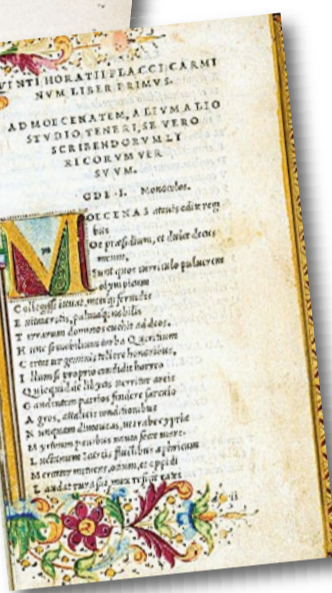 VINTI HORATII FLACCI CARMI
NVM LIBER PRIMVS.
AD MOECENATEM, ALIVM ALIO
STVDIO TENERI, SE VERO
SCRIBENDORVM LY
RICORVM VER
SVVM.
ODE .I. Monocolos.
M
OECENAS atauis edite reg
bus
O et præsidium, et dulce decus
meum,
Sunt quos curriculo puluerem
olympicum
Collegisse iuuat, metáq; feruidis
E uitata rotis, palmáq; nobilis
T errarum dominos euehit ad deos,
H unc si mobilium turba Quiritium
C ertat tergeminis tollere honoribus,
I llum si proprio condidit horreo
Quicquid de libycis uerritur areis
G audentem patrios findere sarculo
A gros, attalicis conditionibus
N unquam dimoueas, ut trabe cypria
M yrtoum pauidus nauta secet mare.
L uctantem icariis fluctibus aphricum
Mercator metuens, ocium, et oppidi
L audat rura sui, mox reficit rates